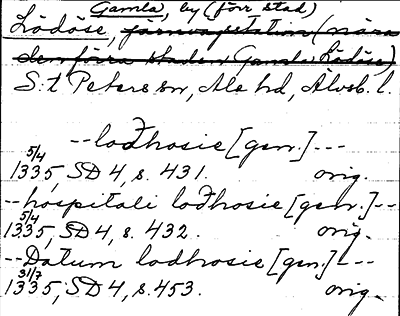 Gamla, by (förr stad)
Lödöse, järnvgstation (nära
den förra staden Gamla Lödöse)
S:t Peters sn, Ale hd, Älvsb. l.
--lođhosie [gen.]---
5/4
1335, SD 4, s. 431. orig.
--hospitali lođhosie [gen.]--
5/4
1335, SD 4, s. 432. orig.
--Datum lodhosie [gen.]---
31/7
1335, SD 4, s. 453. orig.